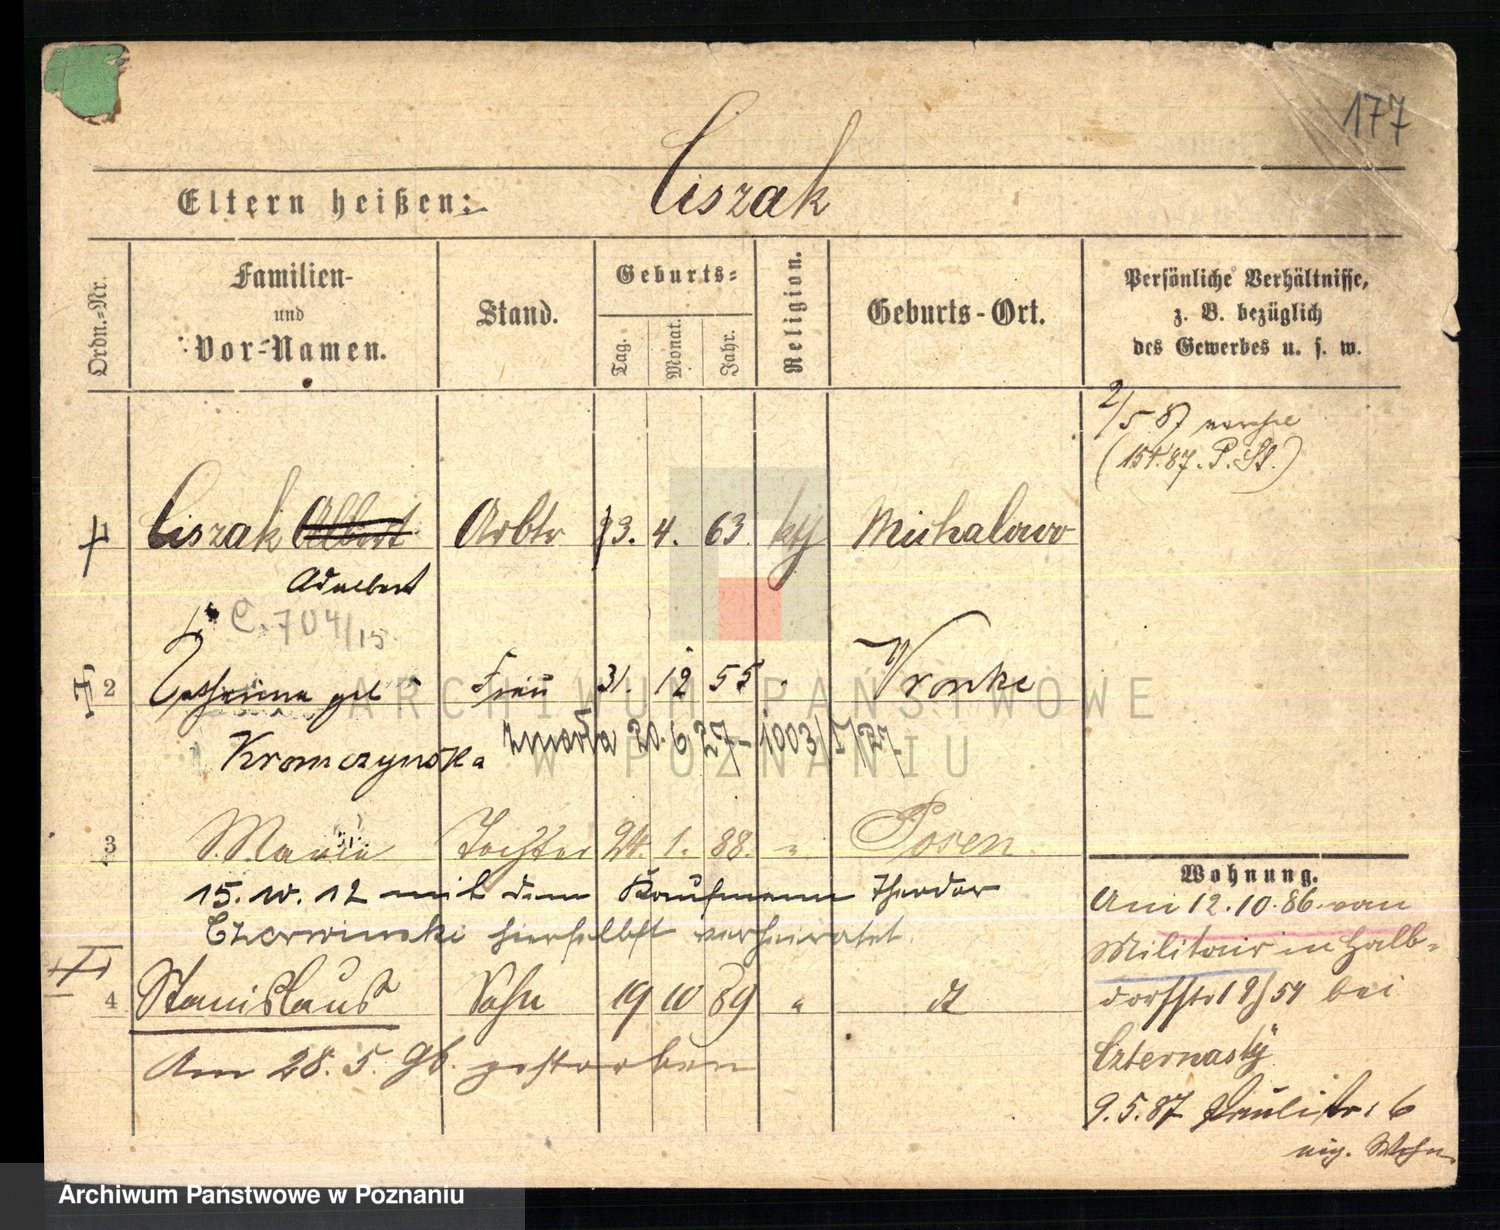 177
Ciszak
Eltern heißen:
Ordn.-Nr.
Familien-
und
Vor-Namen.
Stand.
Geburts-
Tag.
Monat.
Jahr.
Religion.
Geburts-Ort.
Persönliche Verhältnisse,
z. B. bezüglich
des Gewerbes u. s. w.
2/5 87
(15t. 87. P. St.)
1 Ciszak Albert Arbtr 23. 4. 63 kth Michalowo
Adalbert
C. 704/15
2 Catharina geb Frau 31. 12 55 " Wronke
Kromczynska
zmarła 20. 6 27 - 1003/V/27
3 Maria Tochter 24. 1. 88. " Posen.
15. 10. 12 mit dem Kaufmann Theodor
Czerwinski hierselbst verheiratet.
4 Stanislaus Sohn 19 10 89 " dt
Am 28. 5. 96. gestorben
Wohnung.
Am 12. 10. 86 vom
Militair in Halb-
dorfstr 1 9/54 bei
Czternasty
9. 5. 87 Paulistr: 6
eig. Wohn.
ARCHIWUM PAŃSTWOWE
W POZNANIU
Archiwum Państwowe w Poznaniu